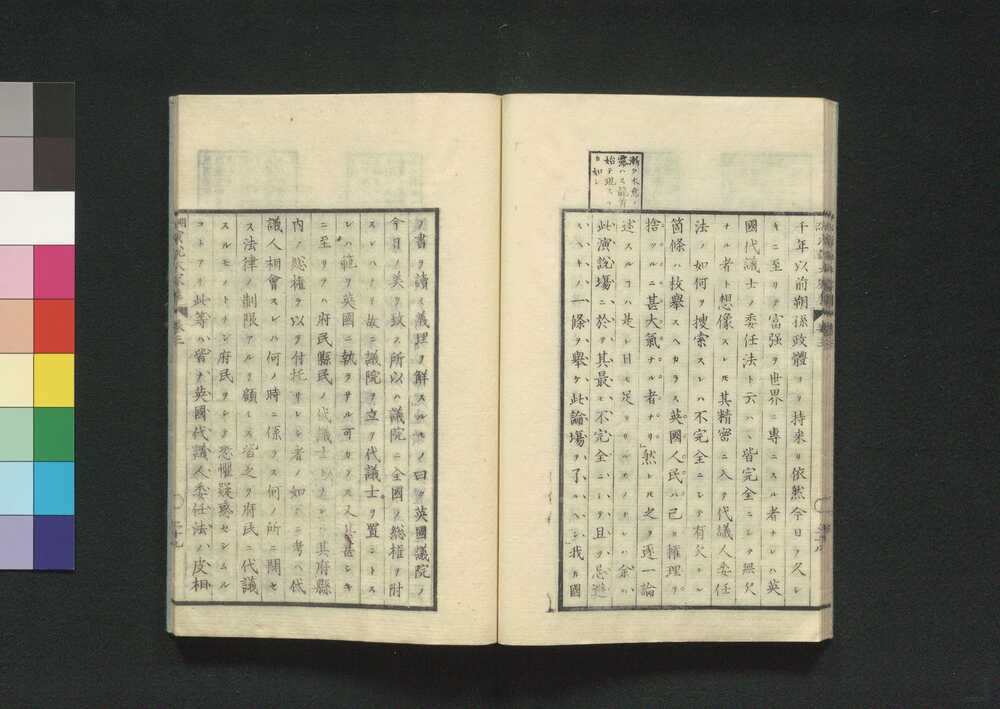 漸ク本意ヲ
露ハス龍首
始テ現スル
カ如シ
千年以前朔孫政體ヲ持来リ依然今日ヲ久シ
キニ至リテ富强ヲ世界ニ專ニスル者ナレハ英
國代議士ノ委任法ト云ハヽ皆完全ニシテ無欠
ナル者ト想像スレ𪜈其精密ニ入テ代議人委任
法ノ如何ヲ搜索スレハ不完全ニシテ有欠ノ
箇條ハ枚擧スヘカラス英國人民ハ己ノ權理ヲ
捨ツルニ甚大氣ナル者ナリ然レ𪜈之ヲ逐一論
述スルハ是レ日モ足リサルモノナレハ余ハ
此演說塲ニ於テ其最モ不完全ニシテ且ツ忌避
スヘキノ一條ヲ擧ケ此論塲ヲ了ルヘシ我カ國
ノ書ヲ讀ミ義理ヲ解スルモノ曰ク英國議院ノ
今日ノ美ヲ致ス所以ハ議院ニ全國ノ総權ヲ附
スレハナリ故ニ議院ヲ立テ代議士ヲ置ントス
レハ範ヲ英國ニ執ラサル可カラス又甚シキ
ニ至リテハ府民縣民ノ代議士以テ其府縣
内ノ総權ヲ以テ付托サレシ者ノ如ク考ヘ代
議人相會スレハ何ノ時ニ係ラス何ノ所ニ関セ
ス法律ノ制限アルヲ顧ミス皆之ヲ府民ニ代議
スルモノトナシ府民ヲシテ恐懼疑惑セシムル
コトアリ此等ハ皆ナ英國代議人委任法ノ皮相
卷三